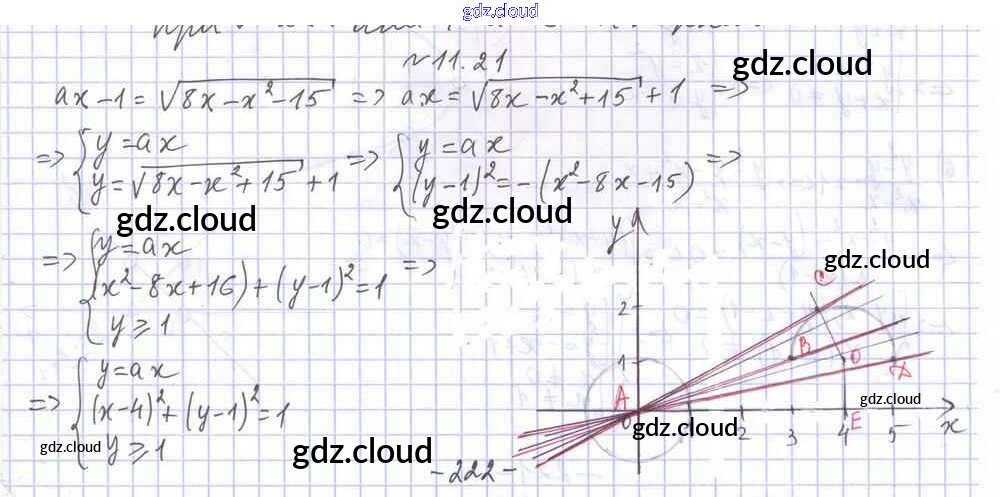 gdz.cloud
gdz.cloud
при
№11.21
gdz.cloud
ax-1=√(8x-x²-15) => ax=√(8x-x²+15)+1 =>
=> {y=ax
y=√(8x-x²+15)+1 => {y=ax
(y-1)²=-(x²-8x-15) =>
gdz.cloud
gdz.cloud
=> {y=ax
(x²-8x+16)+(y-1)²=1
y⩾1 =>
=> {y=ax
(x-4)²+(y-1)²=1
y⩾1
gdz.cloud
gdz.cloud
-222-
y
gdz.cloud
C
2
1
B
O
D
A
gdz.cloud
0
gdz.cloud
2
3
4
E
5
x